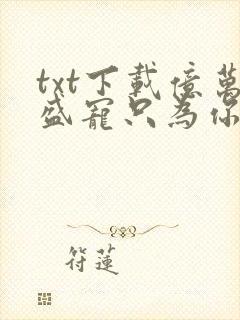 txt下載億萬
盛寵只為你
符蓮